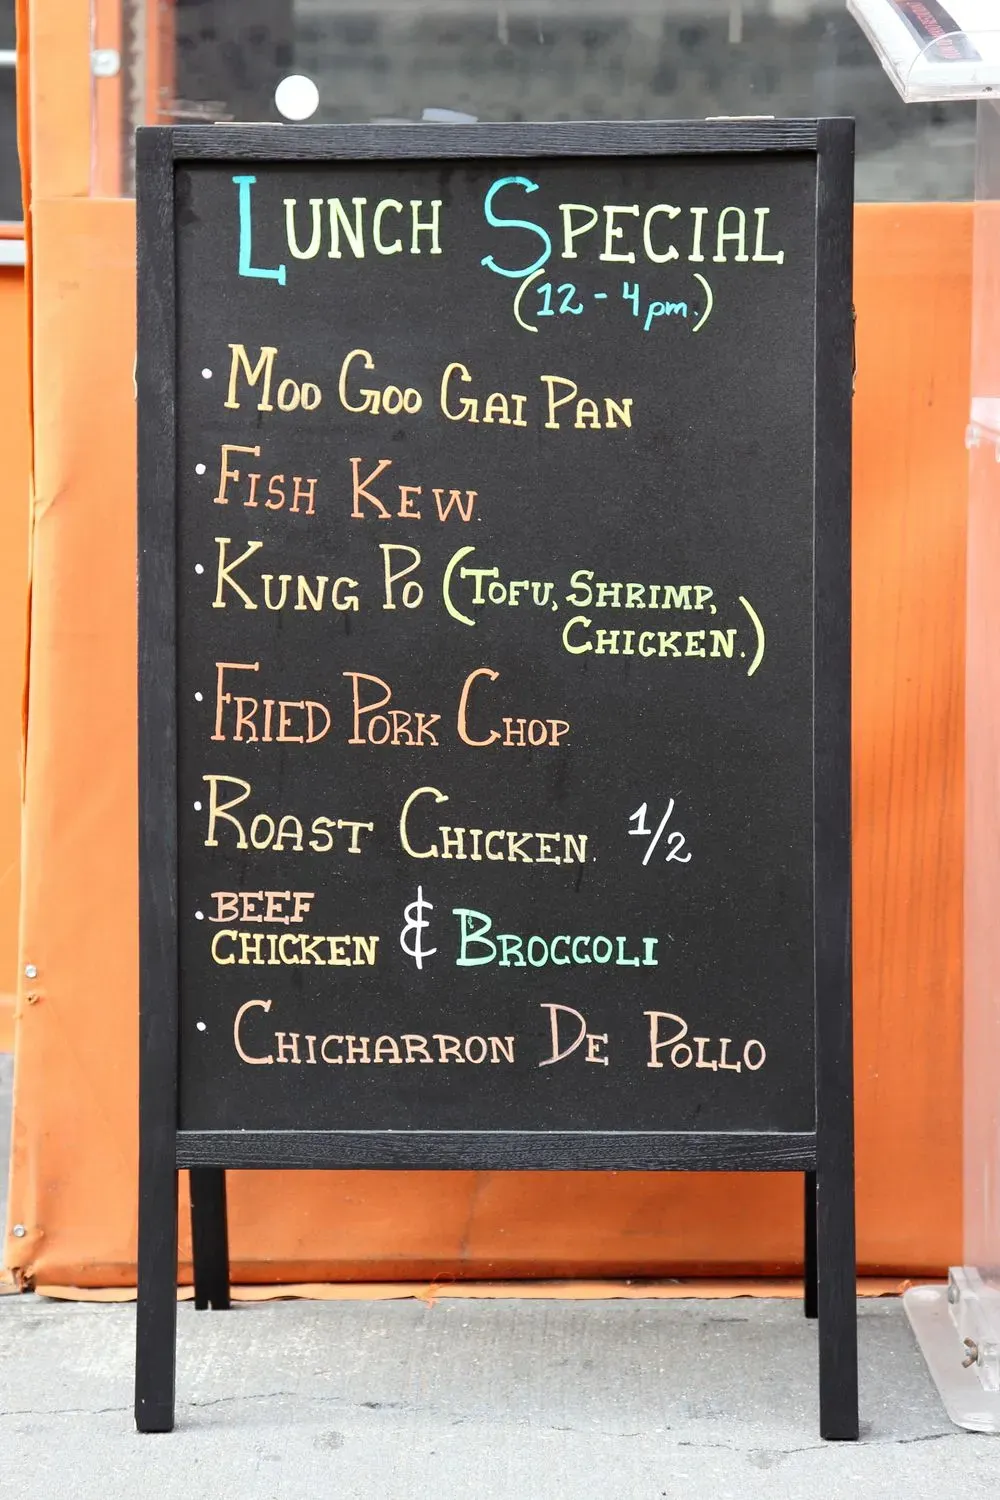 LUNCH SPECIAL
(12 - 4 pm.)
• MOO GOO GAI PAN
• FISH KEW.
• KUNG PO (TOFU, SHRIMP,
CHICKEN.)
• FRIED PORK CHOP.
• ROAST CHICKEN. 1/2
• BEEF
CHICKEN & BROCCOLI
• CHICHARRON DE POLLO